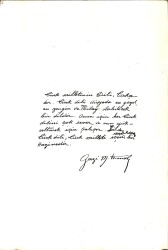 Türk milletinin dili, Türkçe-
dir. Türk dili dünyada en güzel,
en zengin ve kolay olabilecek
bir dildir. Onun için her Türk
dilini çok sever, onu yük-
seltmek için çalışır.
Türk dili, Türk milleti için bir
hazinedir.
Gazi M. Kemal